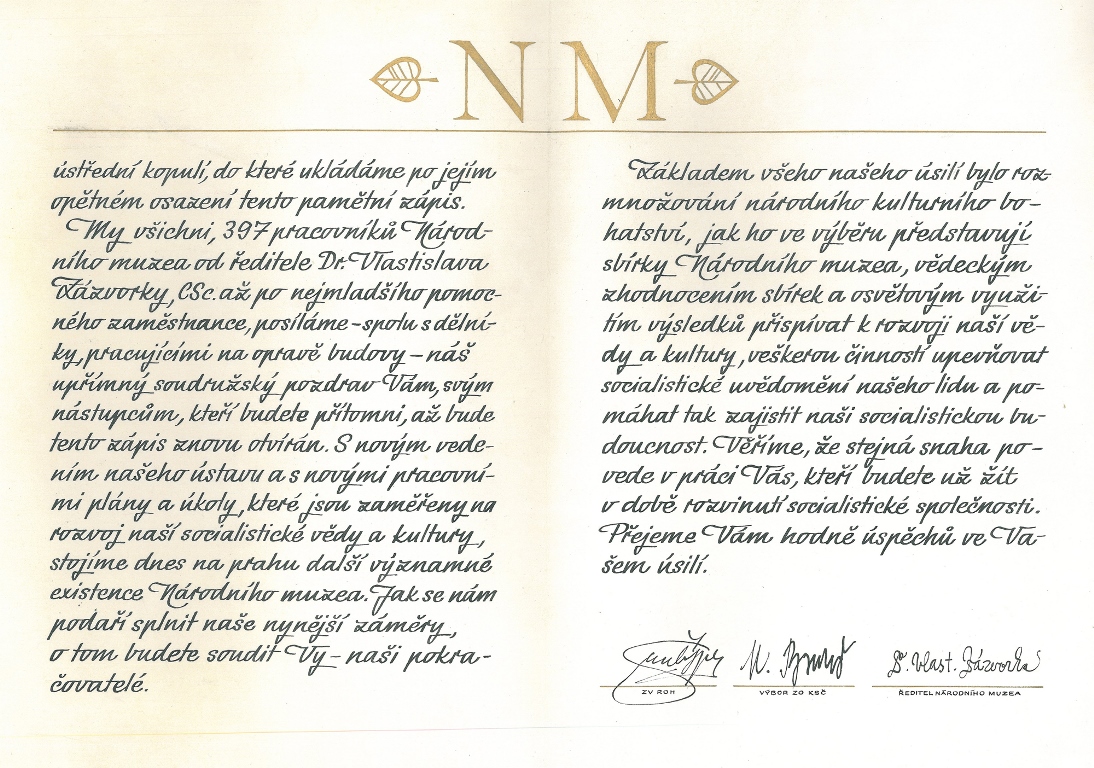 NM
ústřední kopulí, do které ukládáme po jejím
opětném osazení tento pamětní zápis.
My všichni, 397 pracovníků Národ-
ního muzea od ředitele Dr. Vlastislava
Zázvorky, CSc. až po nejmladšího pomoc-
ného zaměstnance, posíláme - spolu s dělní-
ky, pracujícími na opravě budovy - náš
upřímný soudružský pozdrav Vám, svým
nástupcům, kteří budete přítomni, až bude
tento zápis znovu otvírán. S novým vede-
ním našeho ústavu a s novými pracovní-
mi plány a úkoly, které jsou zaměřeny na
rozvoj naší socialistické vědy a kultury,
stojíme dnes na prahu další významné
existence Národního muzea. Jak se nám
podaří splnit naše nynější záměry,
o tom budete soudit Vy - naši pokra-
čovatelé.
Základem všeho našeho úsilí bylo roz-
množování národního kulturního bo-
hatství, jak ho ve výběru představují
sbírky Národního muzea, vědeckým
zhodnocením sbírek a osvětovým využi-
tím výsledků přispívat k rozvoji naší vě-
dy a kultury, veškerou činností upevňovat
socialistické uvědomění našeho lidu a po-
máhat tak zajistit naši socialistickou bu-
doucnost. Věříme, že stejná snaha po-
vede v práci Vás, kteří budete už žít
v době rozvinutí socialistické společnosti.
Přejeme Vám hodně úspěchů ve Va-
šem úsilí.
Dr. Vlast. Zázvorka
ZV ROH
VÝBOR ZO KSČ
ŘEDITEL NÁRODNÍHO MUZEA